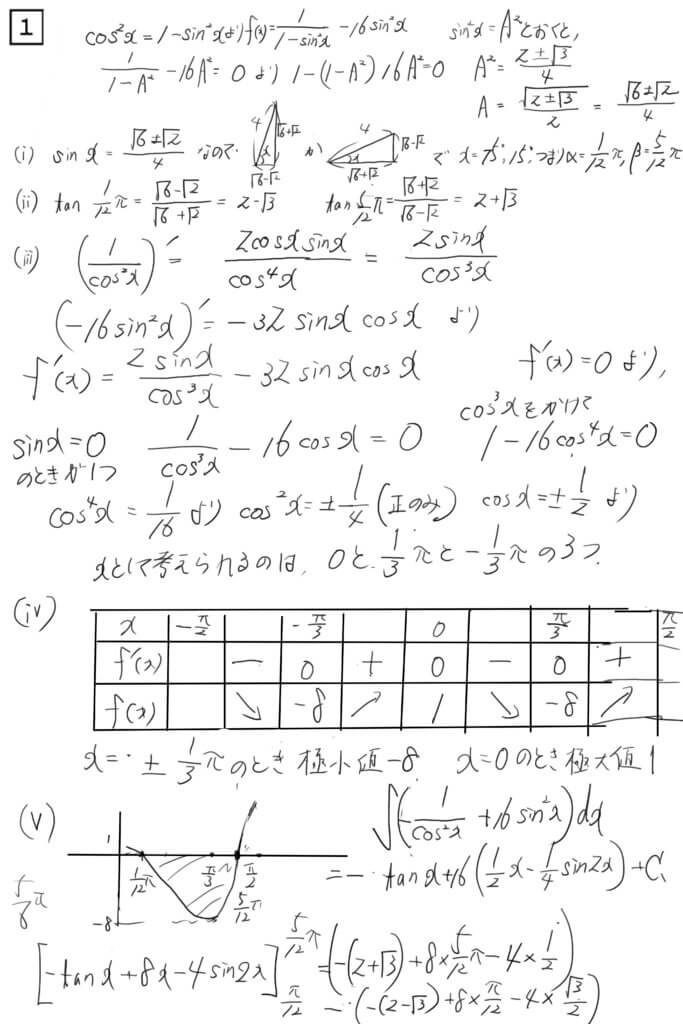 1
cos²x=1-sin²xより f(x)=1/(1-sin²x) -16sin²x sin²x=A²とおくと,
1/(1-A²) -16A²=0 より 1-(1-A²)16A²=0 A²=(2±√3)/4
A=√(2±√3)/2 = (√6±√2)/4
(i) sin x=(√6±√2)/4 なので 4 √6+√2 √6-√2 か 4 √6-√2 √6+√2 で x=75°,15°,つまりα=1/12 π, β=5/12 π
(ii) tan 1/12 π=(√6-√2)/(√6+√2)=2-√3 tan 5/12 π=(√6+√2)/(√6-√2)=2+√3
(iii) (1/cos²x)′= 2cosx sinx/cos⁴x = 2sinx/cos³x
(-16sin²x)′=-32 sinx cosx より
f′(x)= 2sinx/cos³x -32 sinx cosx f′(x)=0 より,
cos³xをかけて
sinx=0 1/cos³x -16cosx=0 1-16cos⁴x=0
のときが1つ
cos⁴x=1/16 より cos²x=±1/4 (正のみ) cosx=±1/2 より
xとして考えられるのは, 0と 1/3 πと -1/3 πの3つ
(iv)
x -π/2 -π/3 0 π/3 π/2
f′(x) - 0 + 0 - 0 +
f(x) ↘ -8 ↗ 1 ↘ -8 ↗
x=±1/3 πのとき極小値-8 x=0のとき極大値1
(v) ∫(-1/cos²x +16sin²x)dx
1 1/12 π π/3 π/2 5/12 π -8
=-tanx+16(1/2 x-1/4 sin2x)+C
[-tanx+8x-4sin2x]_{π/12}^{5/12 π} =(-(2+√3)+8×5/12 π-4×1/2)
-(-(2-√3)+8×π/12-4×√3/2)